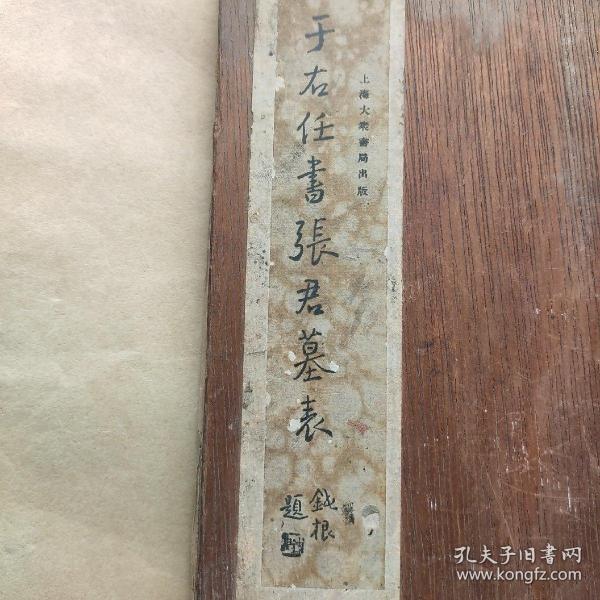 于右任書張君墓表
上海大業書局出版
鈍根
題
孔夫子旧书网
www.kongfz.com